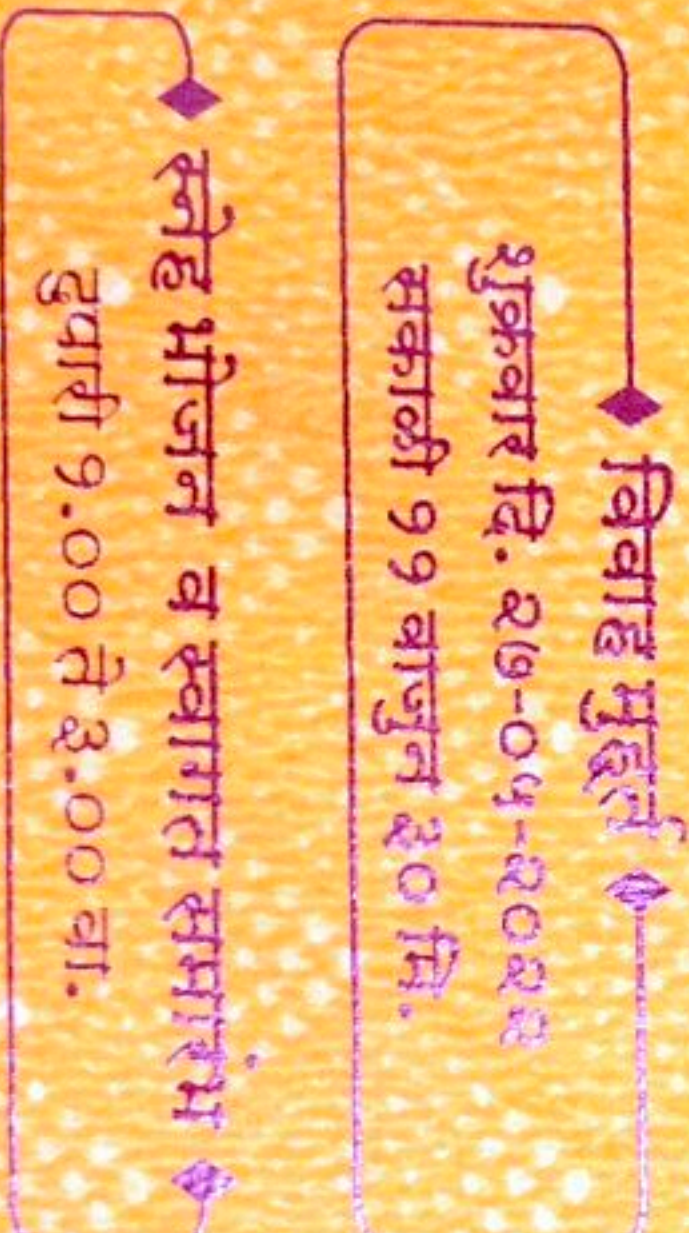 विवाह मुहूर्त
शुक्रवार दि. २७-०५-२०२२
सकाळी ११ वाजुन ३० मि.
स्नेह भोजन व स्वागत समारंभ
दुपारी १.०० ते ३.०० वा.